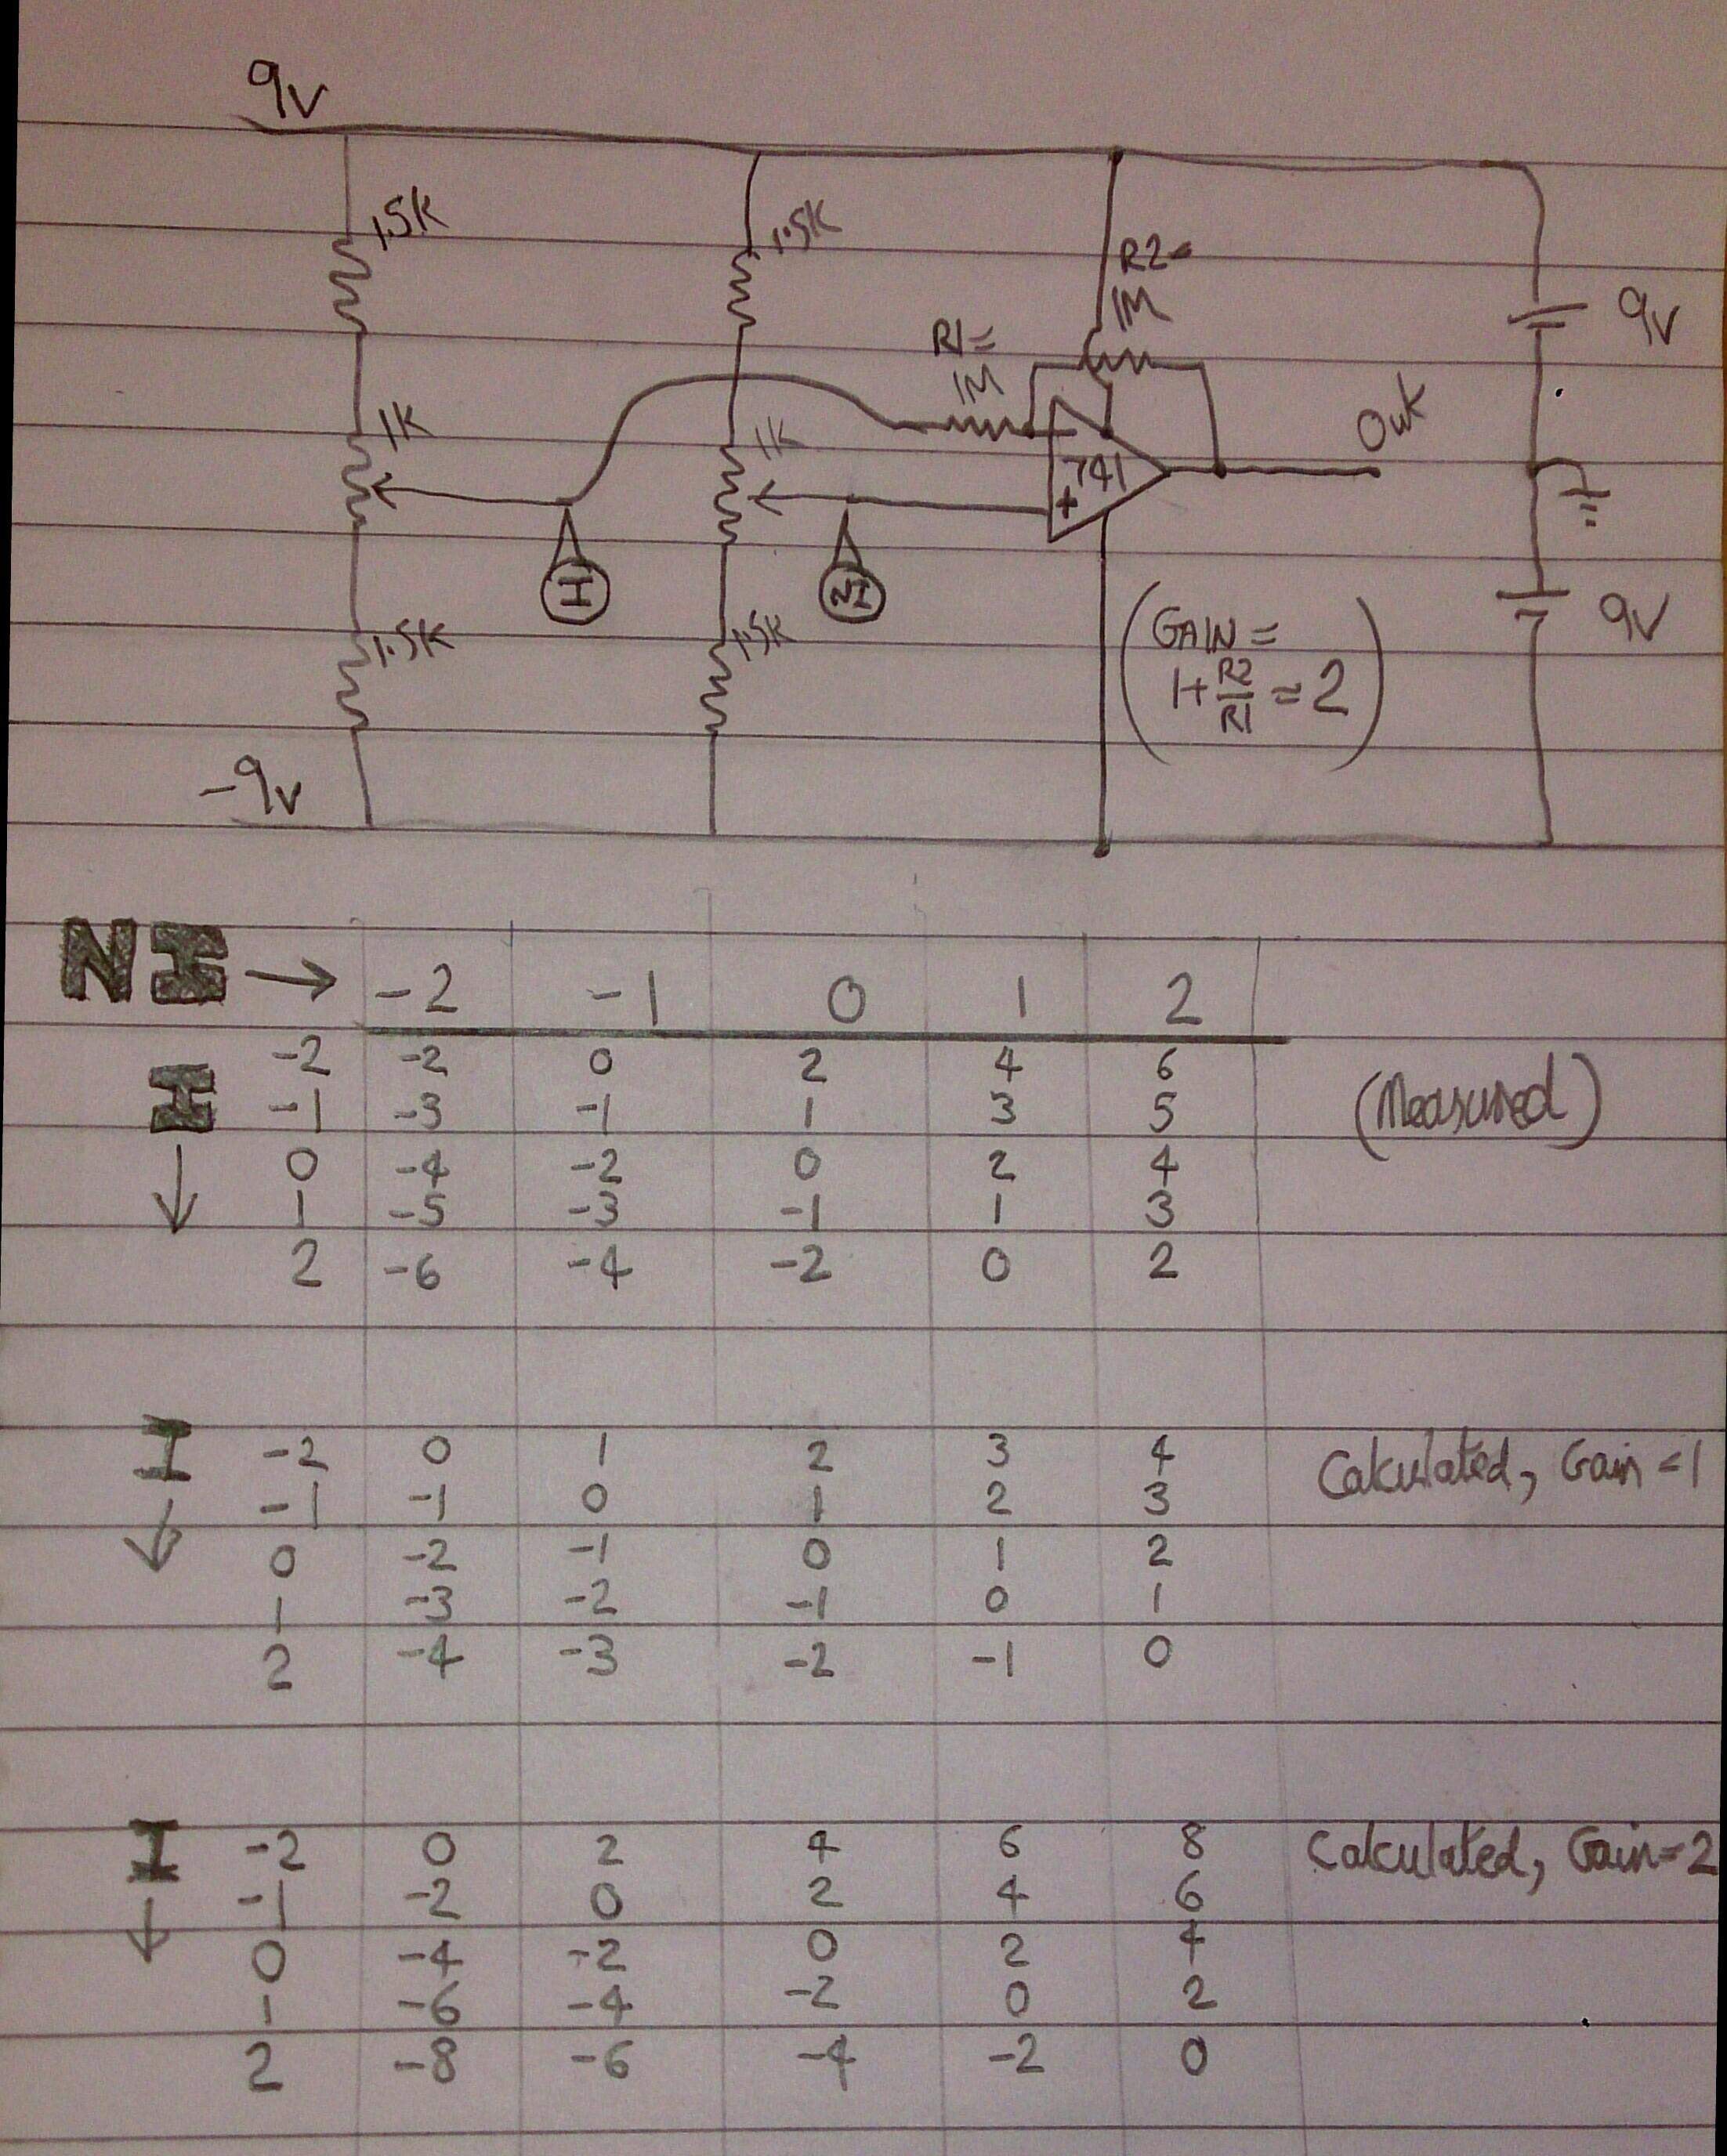 9v
1.5K
1.5K
R2=
1M
9v
R1=
1M
Out
1K
1K
741
+
I
NI
9v
1.5K
1.5K
(GAIN =
1+R2/R1 = 2)
-9v
NI → -2 -1 0 1 2
I -2 -2 0 2 4 6 (Measured)
-1 -3 -1 1 3 5
↓ 0 -4 -2 0 2 4
1 -5 -3 -1 1 3
2 -6 -4 -2 0 2
I -2 0 1 2 3 4 Calculated, Gain=1
↓ -1 -1 0 1 2 3
0 -2 -1 0 1 2
1 -3 -2 -1 0 1
2 -4 -3 -2 -1 0
I -2 0 2 4 6 8 Calculated, Gain=2
↓ -1 -2 0 2 4 6
0 -4 -2 0 2 4
1 -6 -4 -2 0 2
2 -8 -6 -4 -2 0